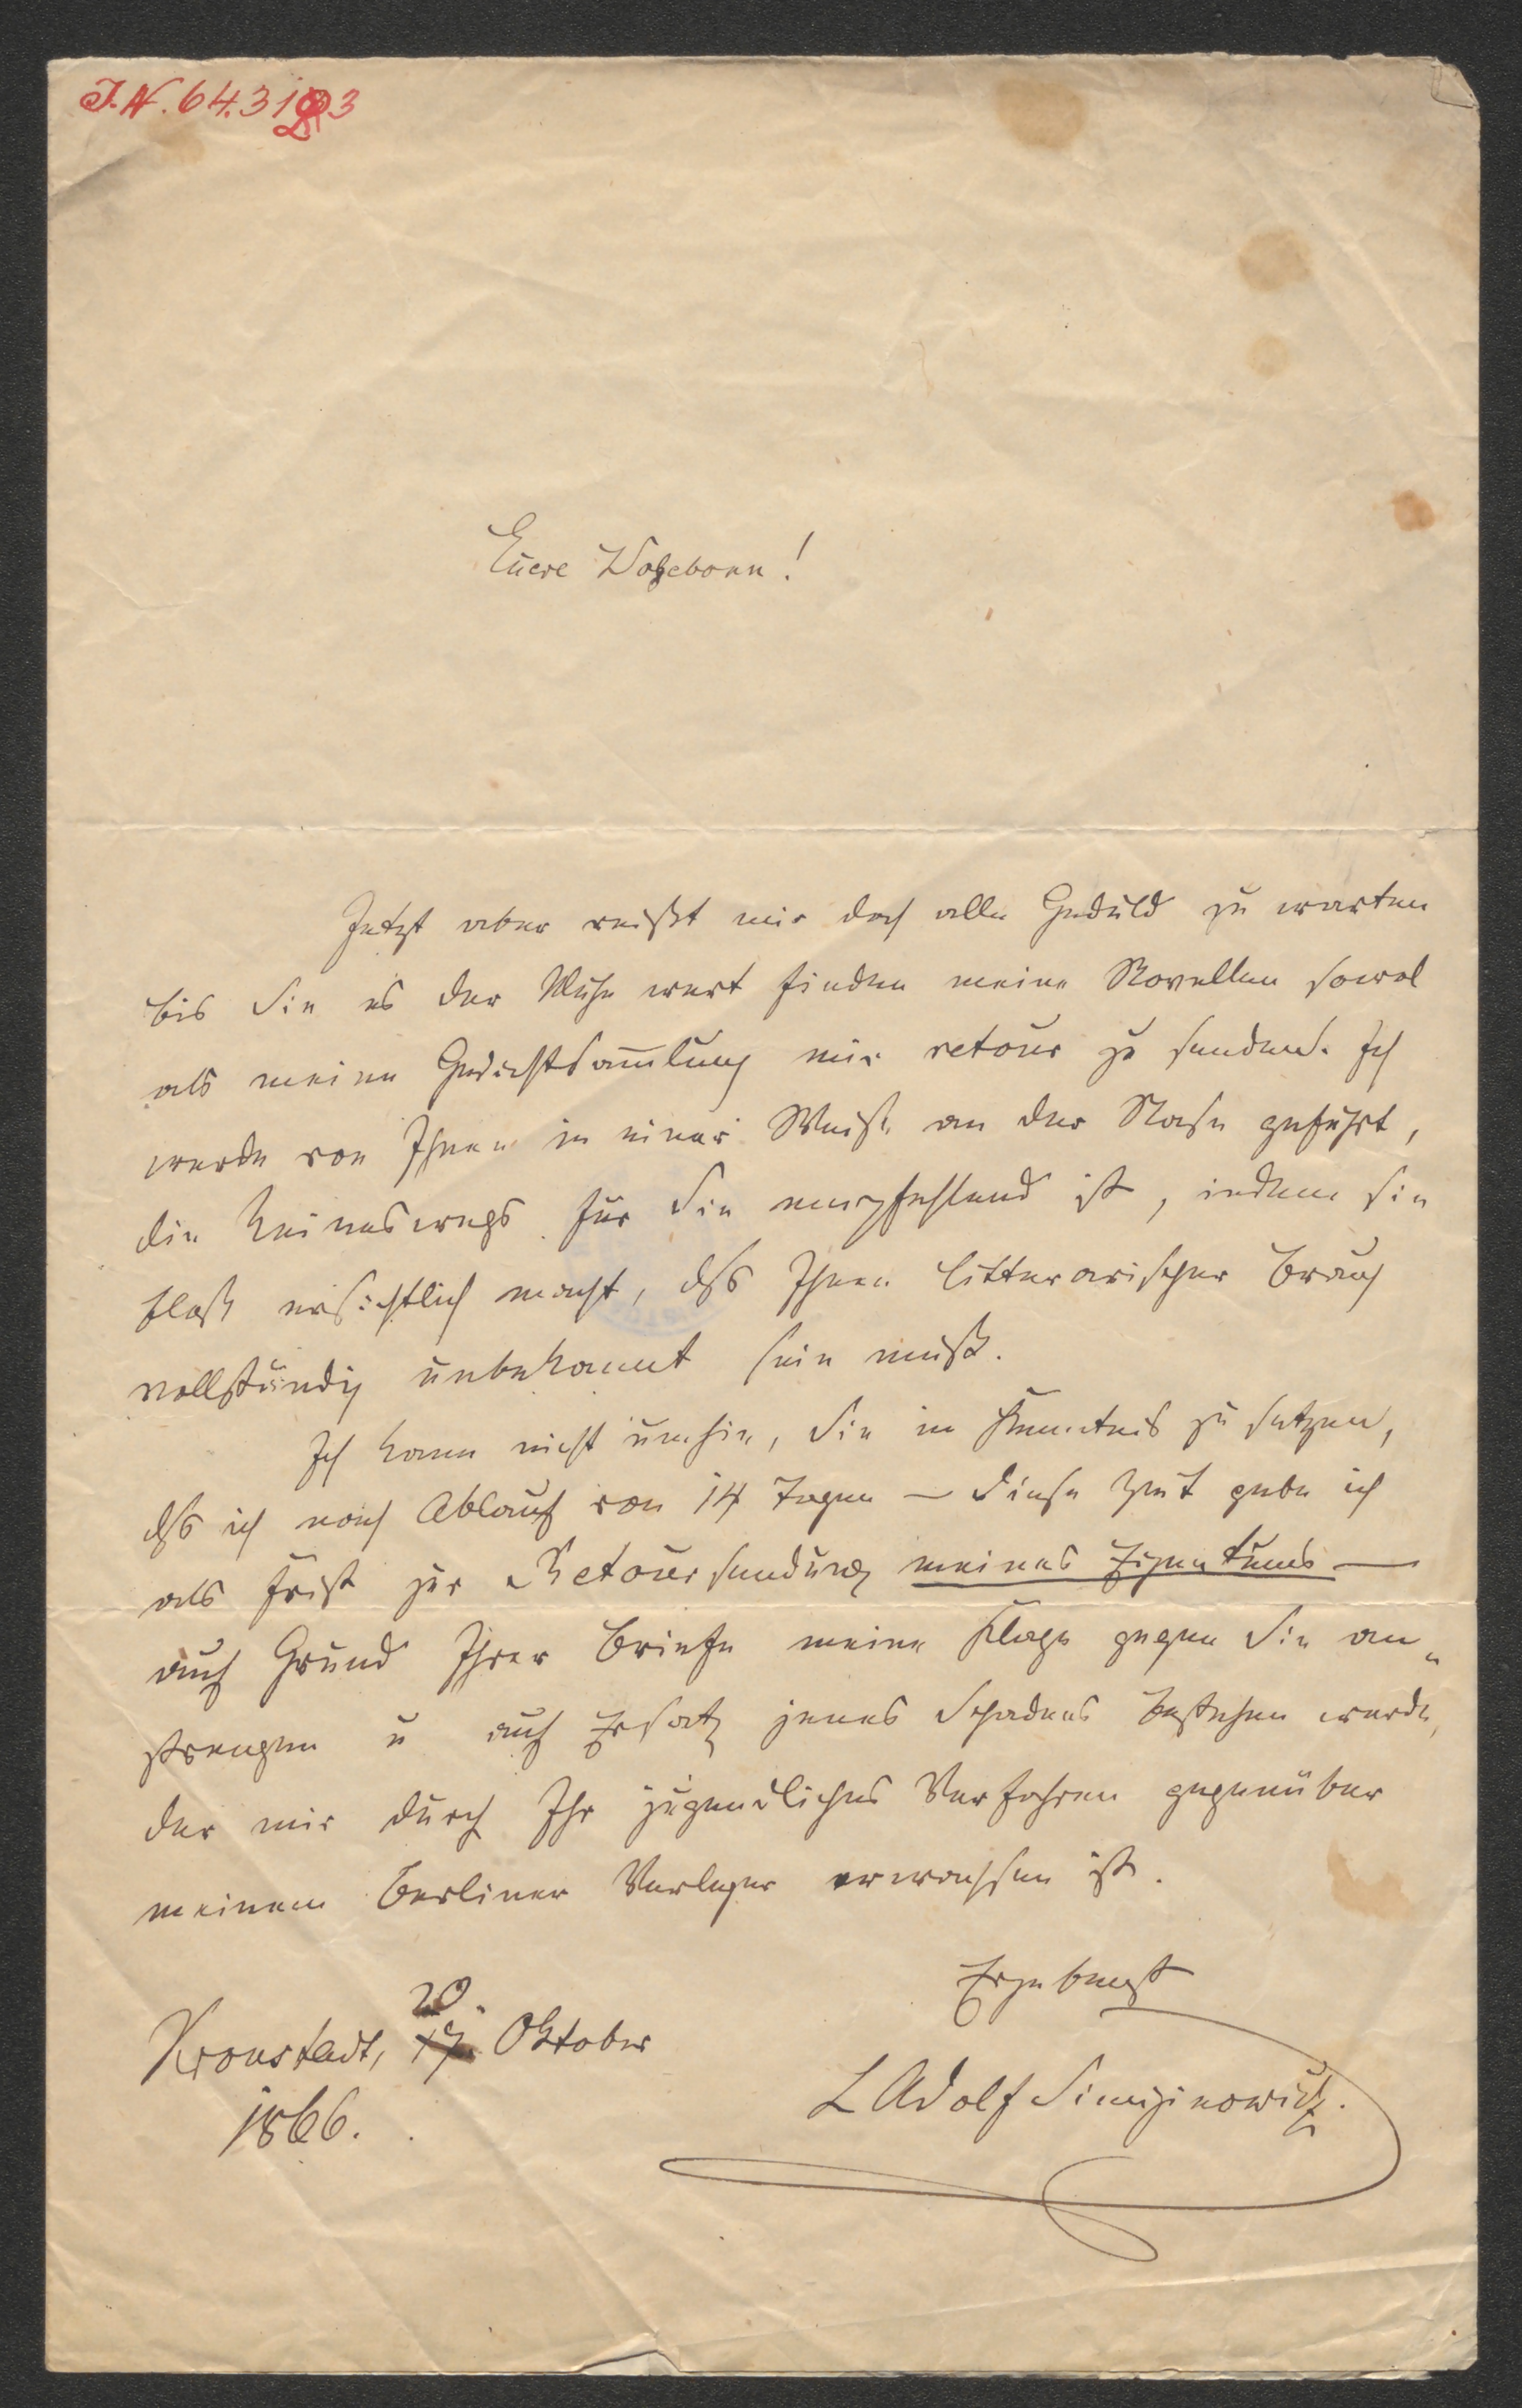 J. N. 64.3123
Euere Wolgeboren!
Jetzt aber reißt mir doch alle Geduld zu warten
bis Sie es der Mühe wert finden meine Novellen sowol
als meine Gedichtsam̄lung mir retour zu senden. Ich
werde von Ihnen in einer Weise an der Nase geführt,
die keineswegs für Sie empfehlend ist, indem sie
bloß ersichtlich macht, dß Ihnen litterarischer Brauch
vollständig unbekannt sein muß.
Ich kann nicht umhin, Sie in Kenntnis zu setzen,
dß ich nach Ablauf von 14 Tagen – diese Zeit gebe ich
als Frist zur Retoursendung meines Eigentums –
auf Grund Ihrer Briefe meine Klage gegen Sie an„
strengen u auf Ersatz jenes Schadens bestehen werde,
der mir durch Ihr jugendliches Verfahren gegenüber
meinem Berliner Verleger erwachsen ist.
Ergebenst
20.
Kronstadt, 17. Oktober
1866.
L Adolf Simiginowicz.